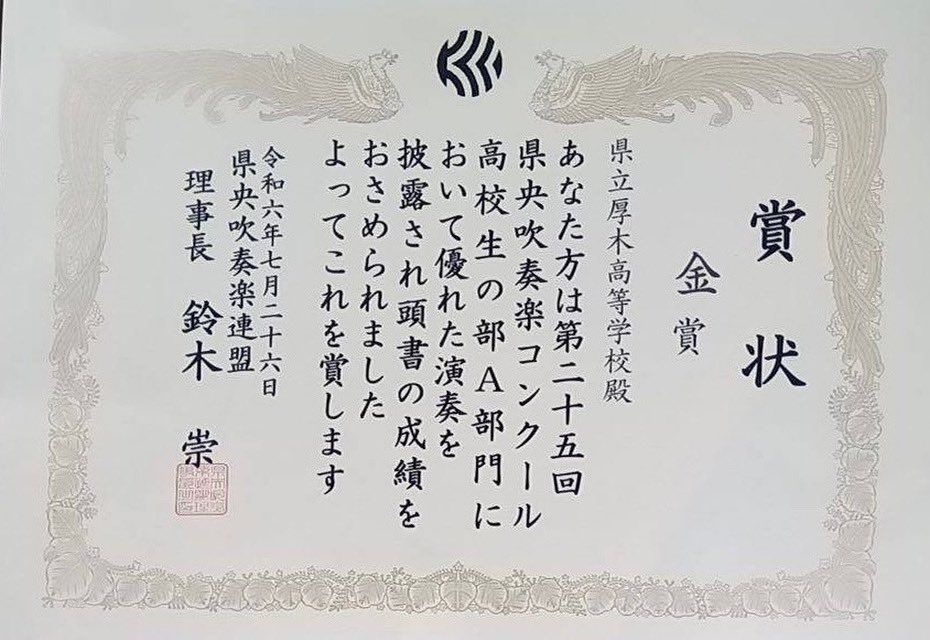 賞状
金賞
県立厚木高等学校殿
あなた方は第二十五回
県央吹奏楽コンクール
高校生の部A部門に
おいて優れた演奏を
披露され頭書の成績を
おさめられました
よってこれを賞します
令和六年七月二十六日
県央吹奏楽連盟
理事長 鈴木 崇